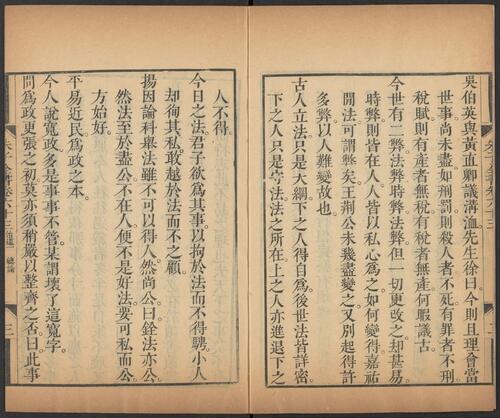 吳伯英與黃直卿議溝洫先生徐曰今則且理會當
世事尚未盡如刑罰則殺人者不死有罪者不刑
稅賦則有產者無稅有稅者無產何暇議古
今世有二弊法弊時弊法弊但一切更改之却甚易
時弊則皆在人人皆以私心為之如何變得嘉祐
間法可謂弊矣王荊公未幾盡變之又別起得許
多弊以人難變故也
古人立法只是大綱下之人得自為後世法皆詳密
下之人只是守法法之所在上之人亦進退下之
人不得
今日之法君子欲為其事以拘於法而不得騁小人
却徇其私敢越於法而不之顧
揚因論科舉法雖不可以得人然尚公曰銓法亦公
然法至於盡公不在人便不是好法要可私而公
方始好
平易近民為政之本
今人說寬政多是事事不管某謂壞了這寬字
問為政更張之初莫亦須稍嚴以整齊之否曰此事
六十三
總論
三
三